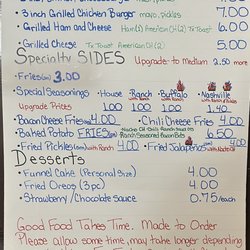 • 3 inch Grilled Chicken Burger mayo, pickles 7.00
• Grilled Ham and Cheese Ham(3) American Ch.(2) Tx Toast 6.00
• Grilled Cheese Tx Toast American Ch.(2) 5.00
Specialty SIDES Upgrade to Medium 2.50 more
• Fries(sm) 3.00
• Special Seasonings • House Ranch • Buffalo • Nashville
Upgrade Prices 1.00 1.00 1.00 1.40
• Bacon Cheese Fries(sm) 4.00 • Chili Cheese Fries 4.00
• Baked Potato FRIES(sm) Ranch Seasoned Bacon Bits 6.50
• Fried Pickles(sm) with Ranch 4.00 • Fried Jalapeños with Ranch 4.00
Desserts
• Funnel Cake (Personal Size) 4.00
• Fried Oreos (3pc) 4.00
• Strawberry/Chocolate sauce 0.75/each
Good Food Takes Time. Made to Order
Please allow some time, may take longer depending